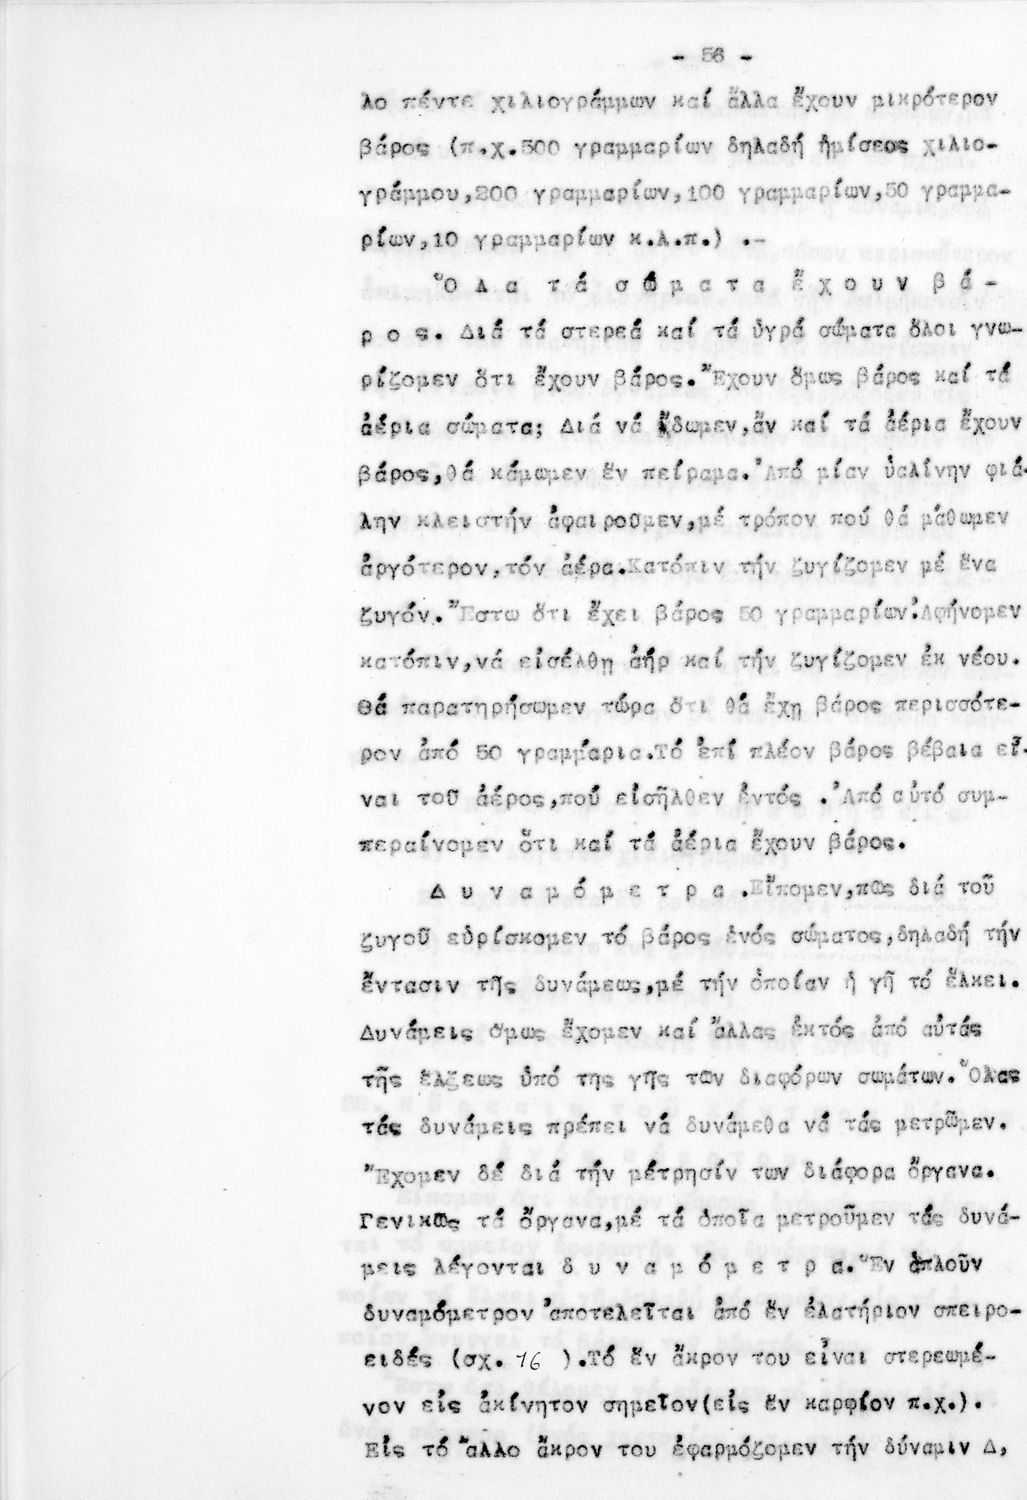 - 56 -
λο πέντε χιλιογράμμων καί ἄλλα ἔχουν μικρότερον
βάρος (π.χ.500 γραμμαρίων δηλαδή ἡμίσεος χιλιο-
γράμμου,200 γραμμαρίων,100 γραμμαρίων,50 γραμμα-
ρίων,10 γραμμαρίων κ.λ.π.) .-
Ὅ λ α τ ά σ ώ μ α τ α ἔ χ ο υ ν β ά -
ρ ο ς. Διά τά στερεά καί τά ὑγρά σώματα ὅλοι γνω-
ρίζομεν ὅτι ἔχουν βάρος. Ἔχουν ὅμως βάρος καί τά
ἀέρια σώματα; Διά νά ἴδωμεν,ἄν καί τά ἀέρια ἔχουν
βάρος,θά κάμωμεν ἕν πείραμα. Ἀπό μίαν ὑαλίνην φιά-
λην κλειστήν ἀφαιροῦμεν,μέ τρόπον πού θά μάθωμεν
ἀργότερον,τόν ἀέρα.Κατόπιν τήν ζυγίζομεν μέ ἕνα
ζυγόν. Ἔστω ὅτι ἔχει βάρος 50 γραμμαρίων.Ἀφήνομεν
κατόπιν,νά εἰσέλθῃ ἀήρ καί τήν ζυγίζομεν ἐκ νέου.
Θά παρατηρήσωμεν τώρα ὅτι θά ἔχῃ βάρος περισσότε-
ρον ἀπό 50 γραμμάρια.Τό ἐπί πλέον βάρος βέβαια εἶ-
ναι τοῦ ἀέρος,πού εἰσῆλθεν ἐντός . Ἀπό αὐτό συμ-
περαίνομεν ὅτι καί τά ἀέρια ἔχουν βάρος.
Δ υ ν α μ ό μ ε τ ρ α .Εἴπομεν,πῶς διά τοῦ
ζυγοῦ εὑρίσκομεν τό βάρος ἑνός σώματος,δηλαδή τήν
ἔντασιν τῆς δυνάμεως,μέ τήν ὁποίαν ἡ γῆ τό ἕλκει.
Δυνάμεις ὅμως ἔχομεν καί ἄλλας ἐκτός ἀπό αὐτάς
τῆς ἕλξεως ὑπό της γῆς τῶν διαφόρων σωμάτων. Ὅλας
τάς δυνάμεις πρέπει νά δυνάμεθα νά τάς μετρῶμεν.
Ἔχομεν δέ διά τήν μέτρησίν των διάφορα ὄργανα.
Γενικῶς τά ὄργανα,μέ τά ὁποῖα μετροῦμεν τάς δυνά-
μεις λέγονται δ υ ν α μ ό μ ε τ ρ α. Ἕν ἁπλοῦν
δυναμόμετρον ἀποτελεῖται ἀπό ἕν ἐλατήριον σπειρο-
ειδές (σχ. 16 ).Τό ἕν ἄκρον του εἶναι στερεωμέ-
νον εἰς ἀκίνητον σημεῖον(εἰς ἕν καρφίον π.χ.).
Εἰς τό ἄλλο ἄκρον του ἐφαρμόζομεν τήν δύναμιν Δ,